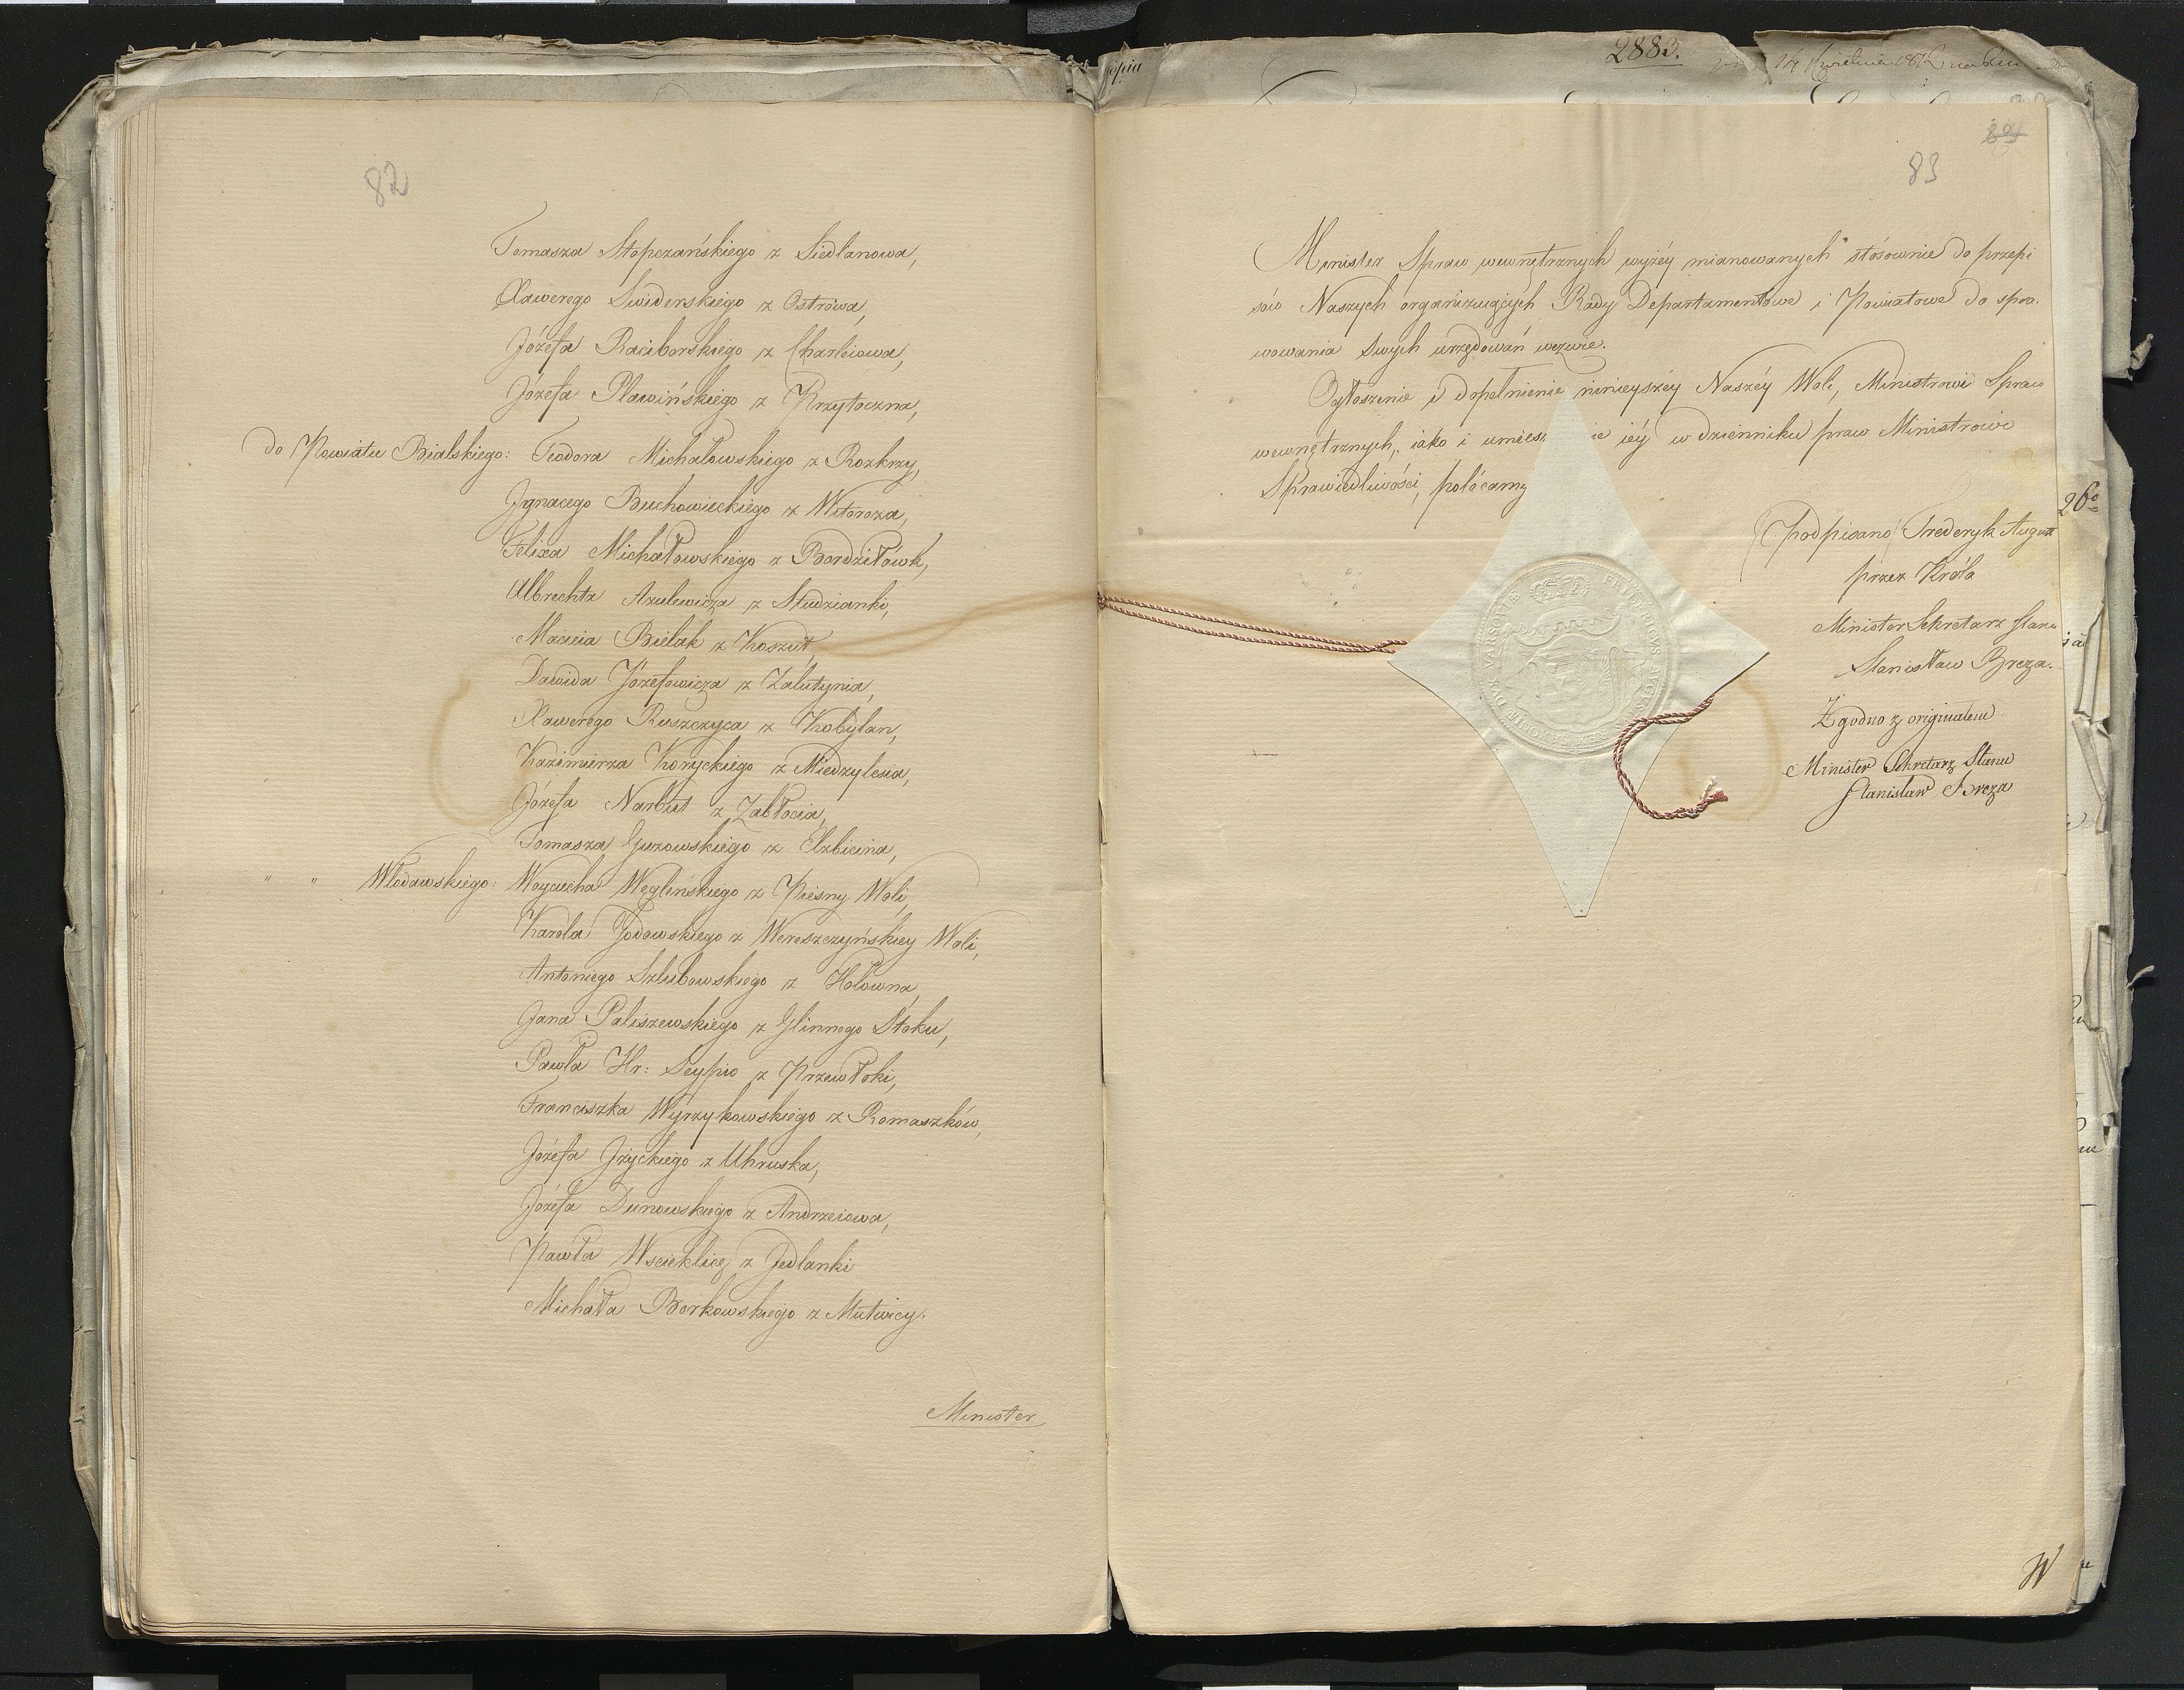 82
Tomasza Stopczańskiego z Siedlanowa,
Xawerego Swiderskiego z Ostrowa,
Józefa Raciborskiego z Charleiowa,
Józefa Pławińskiego z Przytoczna,
do Powiatu Bialskiego: Teodora Michałowskiego z Rozkrzy,
Ignacego Buchowieckiego z Witoroza,
Felixa Michałowskiego z Bordziłówk,
Albrechta Azulewicza z Studzianki,
Macieia Bielak z Koszut,
Dawida Józefowicza z Zalutynia,
Xawerego Ruszczyca z Kobylan,
Kazimierza Koryckiego z Miedzylesia,
Józefa Narbut z Zabłocia,
Tomasza Guzowskiego z Elzbicina,
" " Włodawskiego: Woyciecha Węglińskiego z Pieśny Woli,
Karola Godowskiego z Wereszczyńskiey Woli,
Antoniego Szlubowskiego z Holowna,
Jana Paliszewskiego z Glinnego Stoku,
Pawła Hr: Scypio z Przewłoki,
Franciszka Wyrzykowskiego z Romaszków,
Józefa Jrzyckiego z Uhruska,
Józefa Dunowskiego z Andrzeiowa,
Pawła Wscieklicę z Jedlanki
Michała Borkowskiego z Mutwicy.
Minister
2883.
83
Minister Spraw wewnętrznych wyżéy mianowanych stósownie do przepi
sów Naszych organizuiących Rady Departamentowe i Powiatowe do spra-
wowania swych urzędowań wezwie.
Ogłoszenie i dopełnienie ninieyszéy Naszéy Woli, Ministrowi Spraw
wewnętrznych, iako i umies ie iéy w dzienniku praw Ministrowi
Sprawiedliwości, polécamy
(podpisano) Frederyk August
przez Króla
Minister Sekretarz stanu
Stanisław Breza.
Zgodno z originałem
Minister Sekretarz Stanu
Stanisław Breza
FRIDERICVS AVGVSTVS REX SAXONIÆ DVX VARSOVIÆ
W